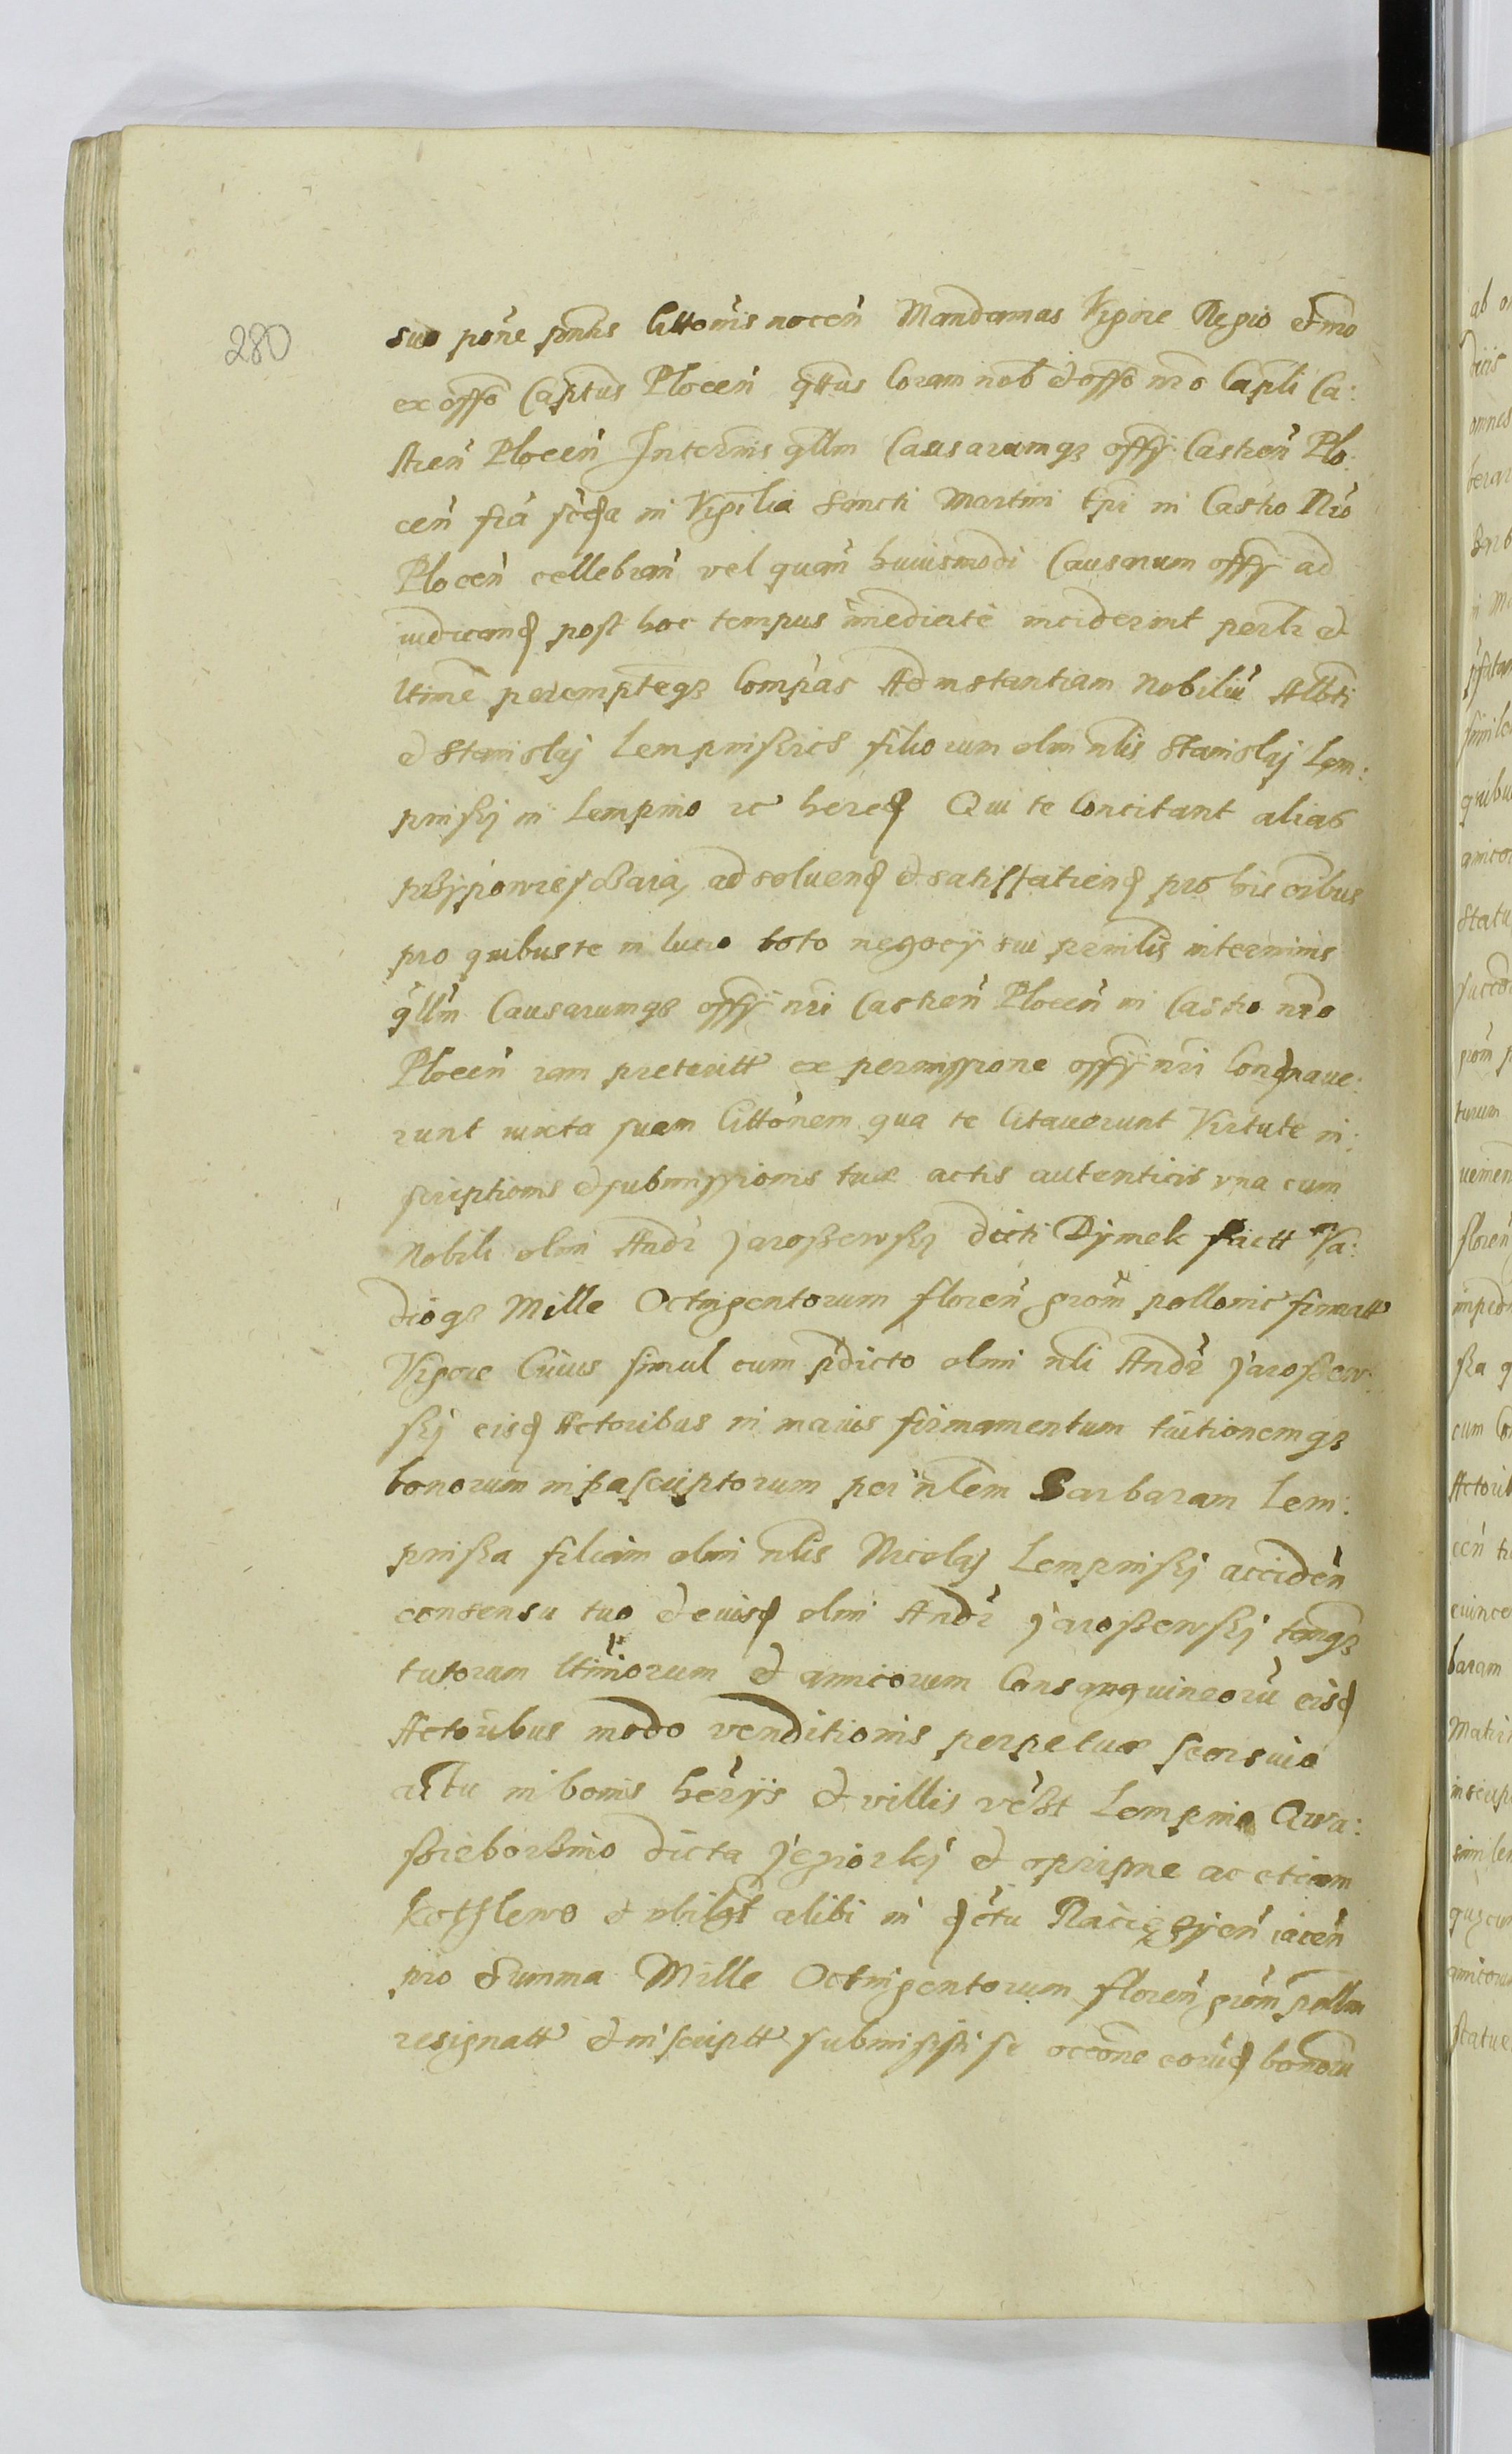 280
suo põne pñtis Cittonis nocen̄ Mandamus Vigore Regio et mo
ex offo Captus Plocen̄ qttus Coram nob et offo nro Capli Ca:
stren̄ Plocen̄ In ternis qllm Causarumq3 offij Castren̄ Plo:
cen̄ fra scda in Vigilia Sancti Martini tpi in Castro Nro
Plocen̄ cellebran̄ vel quan̄ huiusmodi Causarum offij ad
iudicand post hoc tempus imediate inciderint perlr et
ltime perempteq3 Compas Ad instantiam Nobiliu Alb̄ti
et Stanislaj Lempinskich filiorum olim nlis Stanislaj Lem:
pinskj in Lempino rc hered Qui te Concitant alias
przÿpowiesczaią ad soluend et satisfatiend pro his oribus
pro quibus te in lucro toto negocÿ sui prinlis in terminis
qllm Causarumq3 offij nri Castren̄ Plocen̄ in Castro nro
Plocen̄ iam preteritt ex permissione offij nri Condnaue:
runt iuxta suam Cittonem qua te Citauerunt Virtute in:
scriptionis et submissionis tuæ actis autenticis vna cum
Nobili olim Andr Jaroszewskj dicti Dÿmek factt Va:
dioq3 Mille Octingentorum floren̄ grom pollonic firmatt
Vigore Cuius simul cum pdicto olim nli Andr Jaroszew:
skj eisd Actoribus in maius firmamentum tuitionemq3
bonorum infrascriptorum per nlem Barbaram Lem:
pinska filiam olim nlis Nicolaj Lempinskj acciden̄
consensu tuo et eiusd olim Andr Jaroszewskj tanq3
tutorum ltimorum et amicorum Consanguineoru eisd
Actoribus modo venditionis perpetuæ seorsuio
actu in bonis herijs et villis vdzt Lempino
dicta Jeziorkj et ac etiam
et vbilzt alibi in dctu Raciezÿen̄ iacen̄
pro Summa Mille Octingentorum floren̄ grom pollm
resignatt et inscriptt submisisti se occone coru͞d bonoru